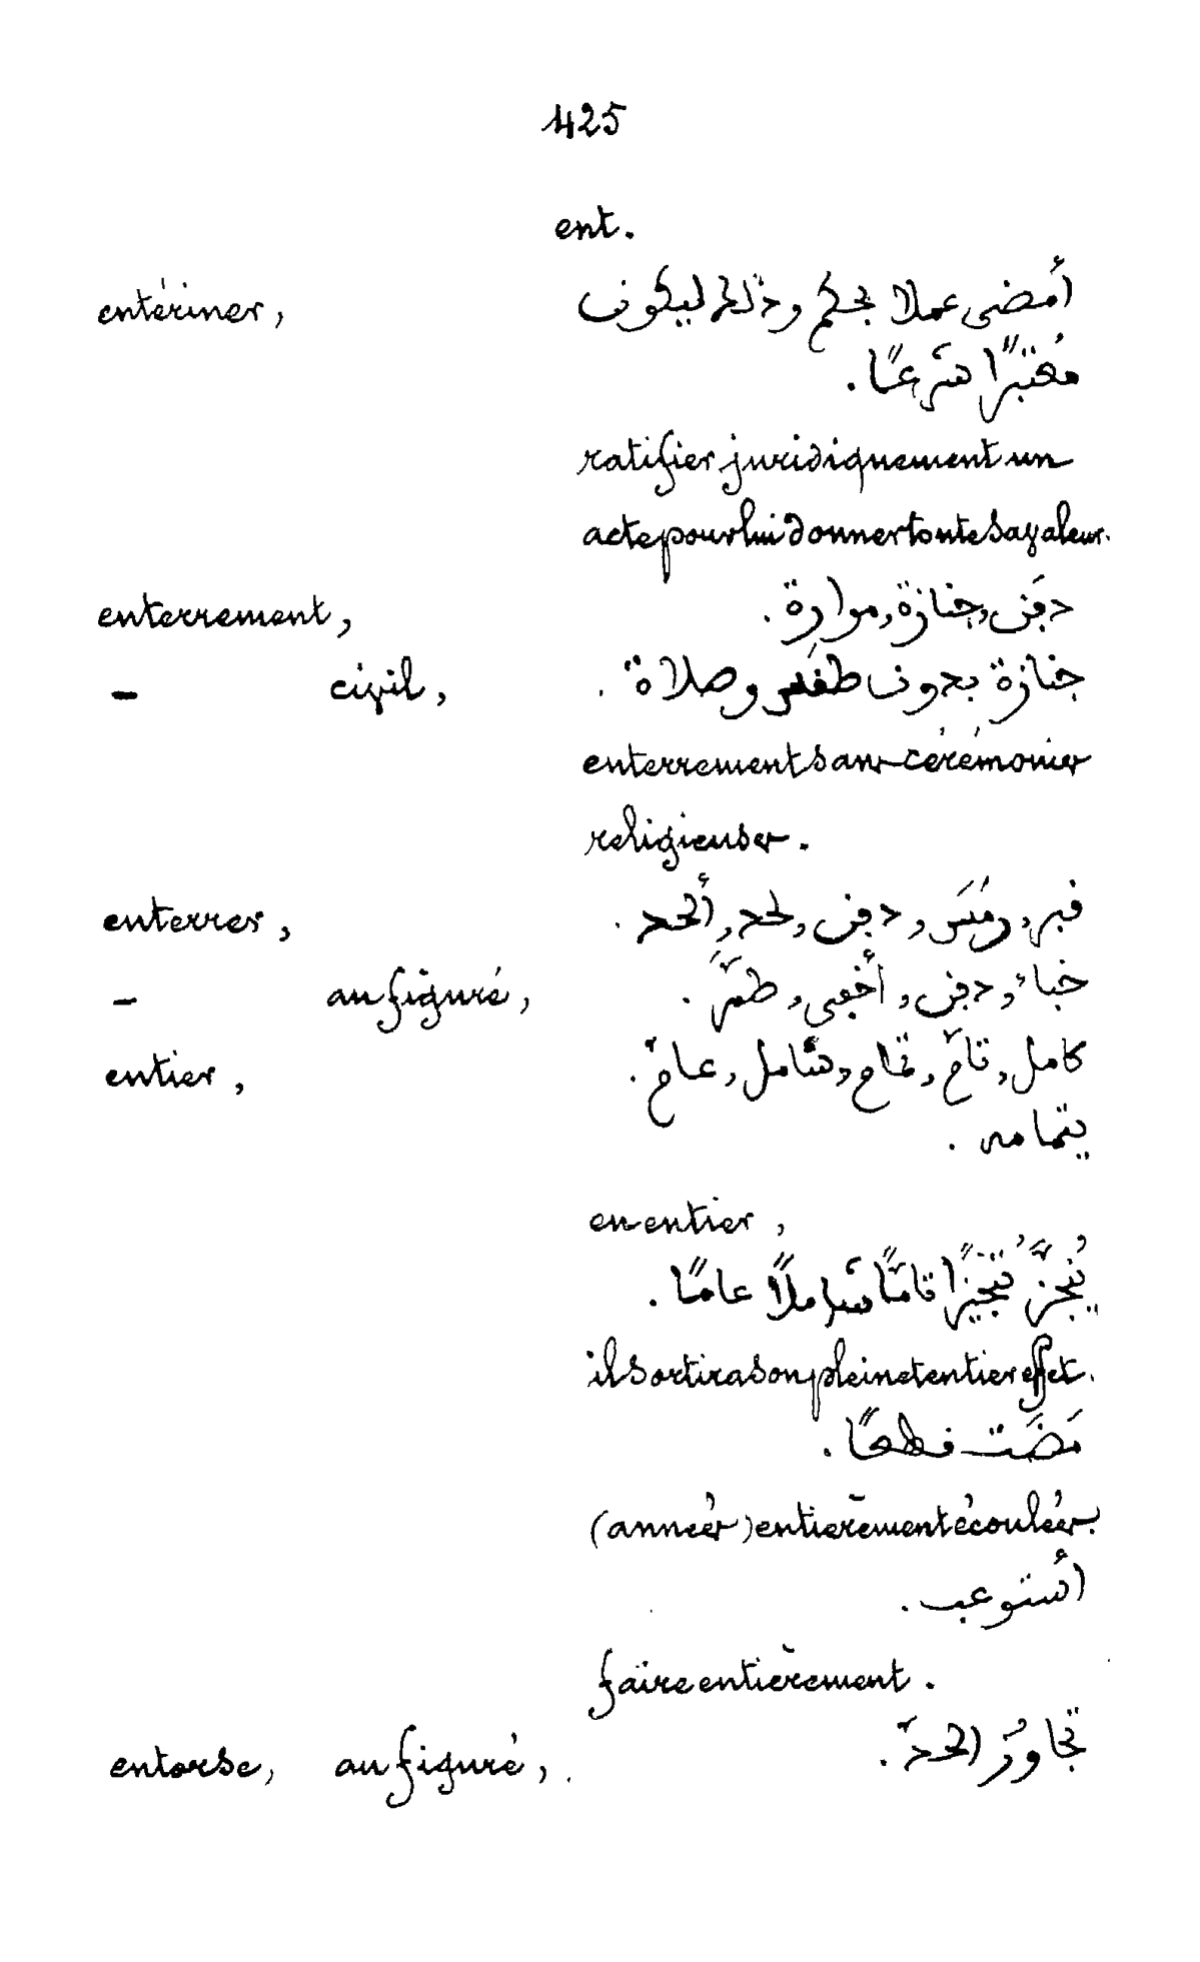 425
ent.
entériner, أمضى عملا بحكم وذلك ليكون
مُعْتَبَرًا شَرعًا.
ratifier juridiquement un
acte pour lui donner toute sa valeur.
enterrement, دفن, جنازة, مواراة.
— civil, جنازة بدون طقس وصلاة.
enterrement sans cérémonies
religieuses.
enterrer, قبر, رمَسَ, دفن, لحد, ألحد.
— au figuré, خباء, دفن, أخفى, طمَّرَ.
entier, كامل, تامّ, تمام, شامل, عامّ.
بتمامه.
en entier,
يُنَجَّزُ تَنجيزًا تامًّا شاملاً عامًا.
il sortira son plein et entier effet.
مَضَت قطعًا.
(années) entièrement écoulées.
أستوعب.
faire entièrement.
entorse, au figuré, تجاوُز الحدّ.